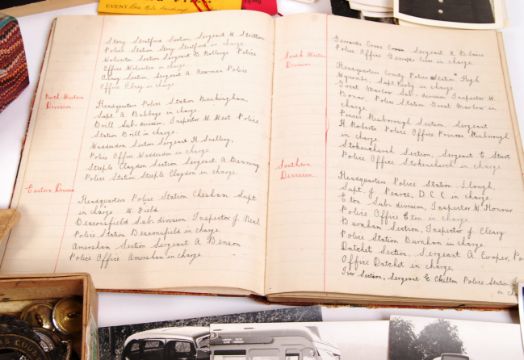 EVENT
Stony Stratford Section Sergeant H
Police Station Stony Stratford in charge.
Wolverton Section Sergeant E Rollings Police
Office Wolverton in charge
Olney Section Sergeant A Bowman Police
Office Olney in charge
North Western
Division
Headquarters Police Station Buckingham,
Supt A. Babbage in charge
Brill Sub-division, Inspector W. West Police
Station Brill in charge.
Waddesdon Section Sergeant H. Snelling,
Police Office Waddesdon in charge.
Steeple Claydon Section, Sergeant A Denning
Police Station Steeple Claydon in charge.
Eastern Division
Headquarters Police Station Chesham Supt
in charge W. Field
Beaconsfield Sub division Inspector J. Neal
Police Station Beaconsfield in charge.
Amersham Section Sergeant A Benson
Police Office Amersham in charge.
Gerrards Cross Sergeant
Police Office Gerrards Cross in charge.
South Western
Division
Headquarters County Police Station High
Wycombe, Supt in charge
Great Marlow Sub-division Inspector H.
Police Station Great Marlow in
charge
Princes Risborough Section Sergeant
H Roberts Police Office Princes Risborough
in charge
Stokenchurch Section, Sergeant E Stort
Police Office, Stokenchurch in charge.
Southern
Division
Headquarters Police Station Slough,
Supt. J. Pearce, D.C.C. in charge
Eton Sub division, Inspector H. Honour
Police Office Eton in charge
Burnham Section, Inspector J. Cleary
Police Station Burnham in charge.
Datchet Section, Sergeant A Cooper, Po
Office Datchet in charge.
Iver Section, Sergeant E Chilton Police Statio
in c